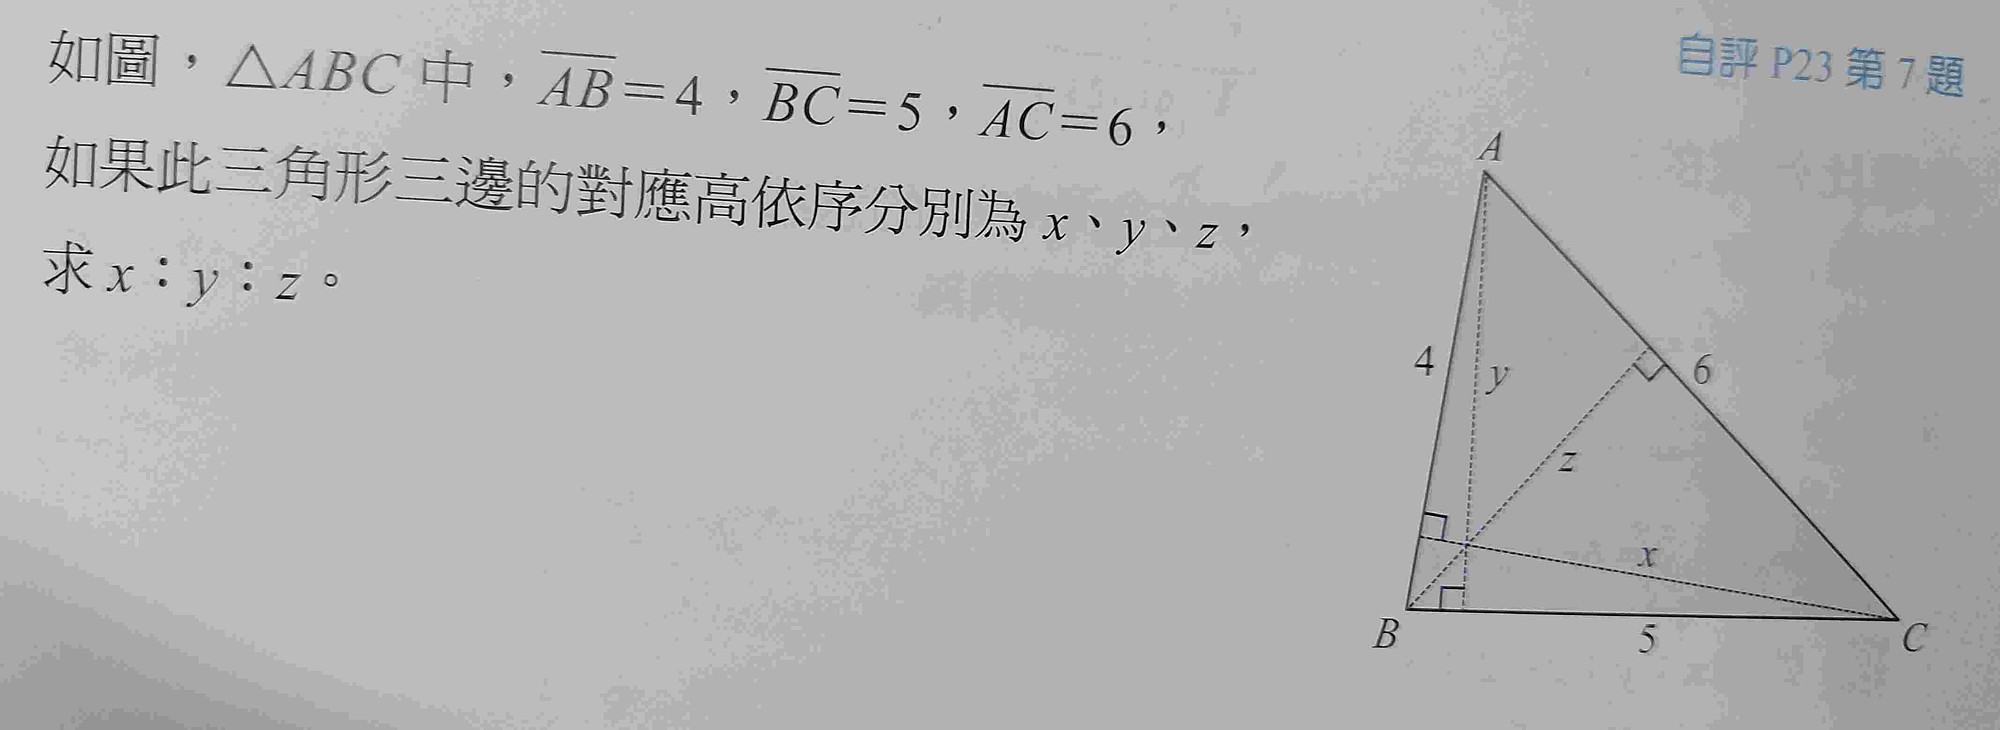 自評 P23 第 7 題
如圖，△ABC 中，AB＝4，BC＝5，AC＝6，
如果此三角形三邊的對應高依序分別為 x、y、z，
求 x：y：z。
A
4
y
6
z
x
B
5
C